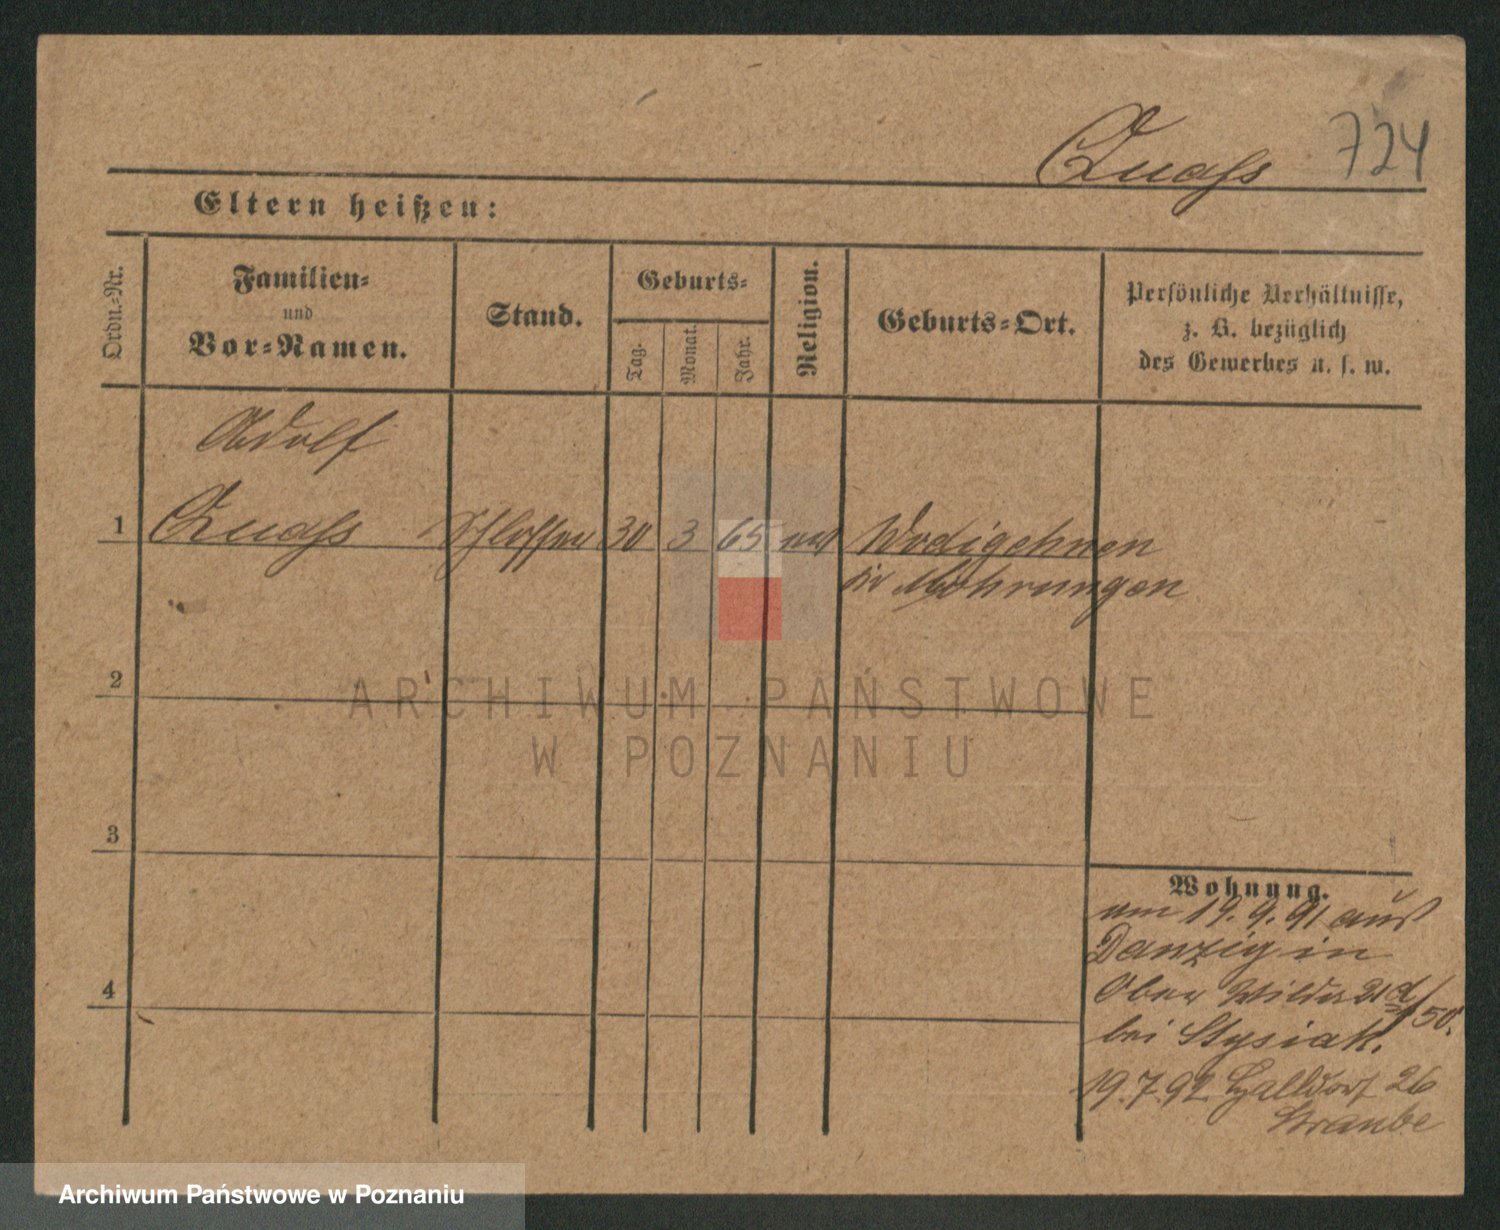 Quass 724
Eltern heißen:
Ordn.-Nr.
Familien-
und
Vor-Namen.
Stand.
Geburts-
Tag.
Monat.
Jahr.
Religion.
Geburts-Ort.
Persönliche Verhältnisse,
z. B. bezüglich
des Gewerbes u. s. w.
Adolf
1 Quass Schlosser 30 3 65 Wodigehnen
Mohrungen
2
3
4
Wohnung.
am 19.9.91 aus
Danzig in
Ober Wilda 21d/50.
bei Stysiak.
19.7.92 Halldorf 26
Straube
ARCHIWUM PAŃSTWOWE
W POZNANIU
Archiwum Państwowe w Poznaniu